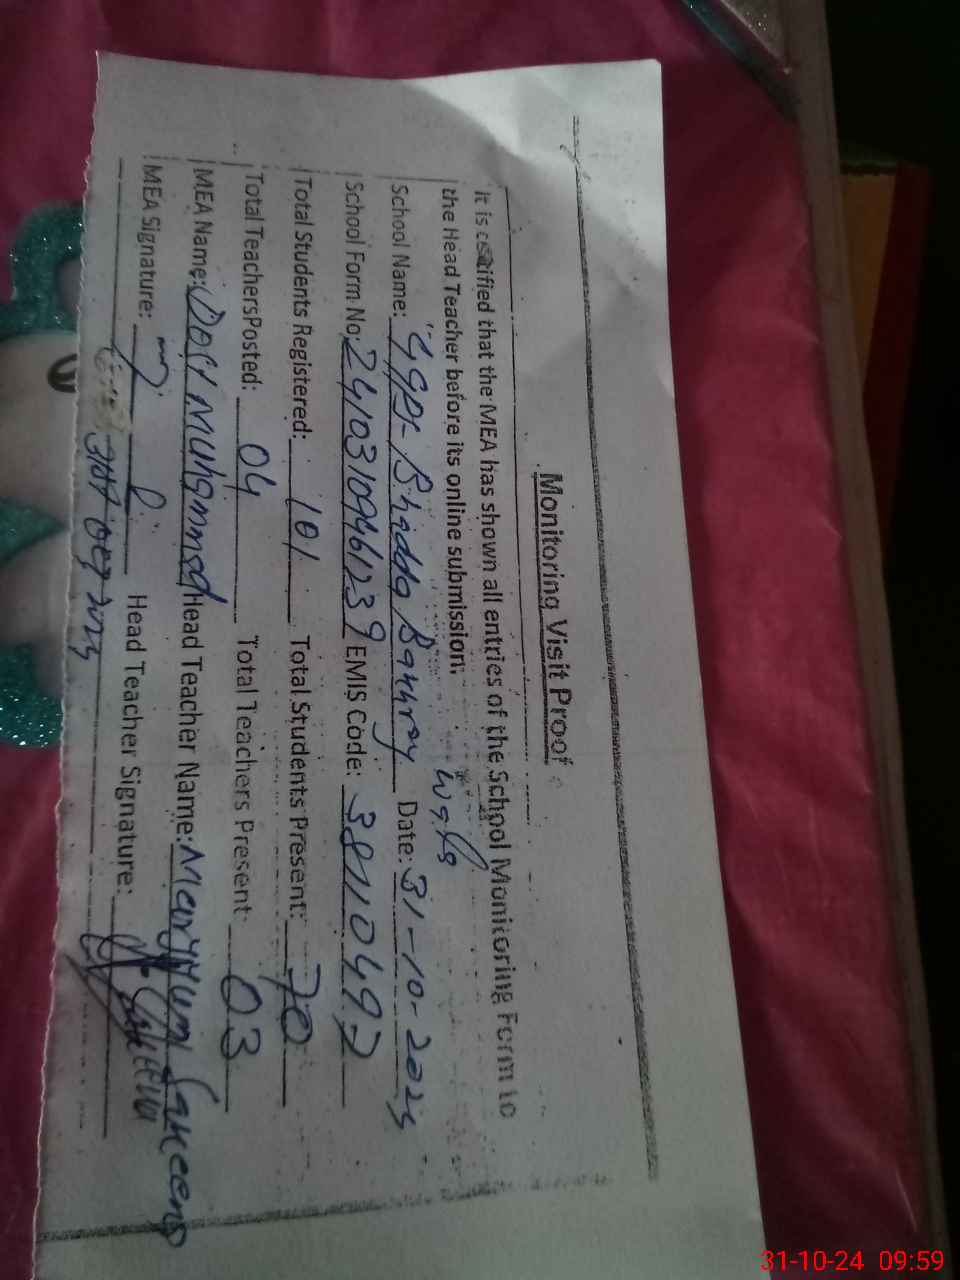 Monitoring Visit Proof
It is certified that the MEA has shown all entries of the School Monitoring Form to
the Head Teacher before its online submission.
School Name: GGPS Bhadda Date: 31-10-202
School Form No: 24103109461239 EMIS Code: 38110497
Total Students Registered: 101 Total Students Present: 70
Total TeachersPosted: 04 Total Teachers Present: 03
MEA Name: Dost Muhammad Head Teacher Name: Maryyum Sakeena
MEA Signature: Head Teacher Signature: Sakeena
31-10-24 09:59